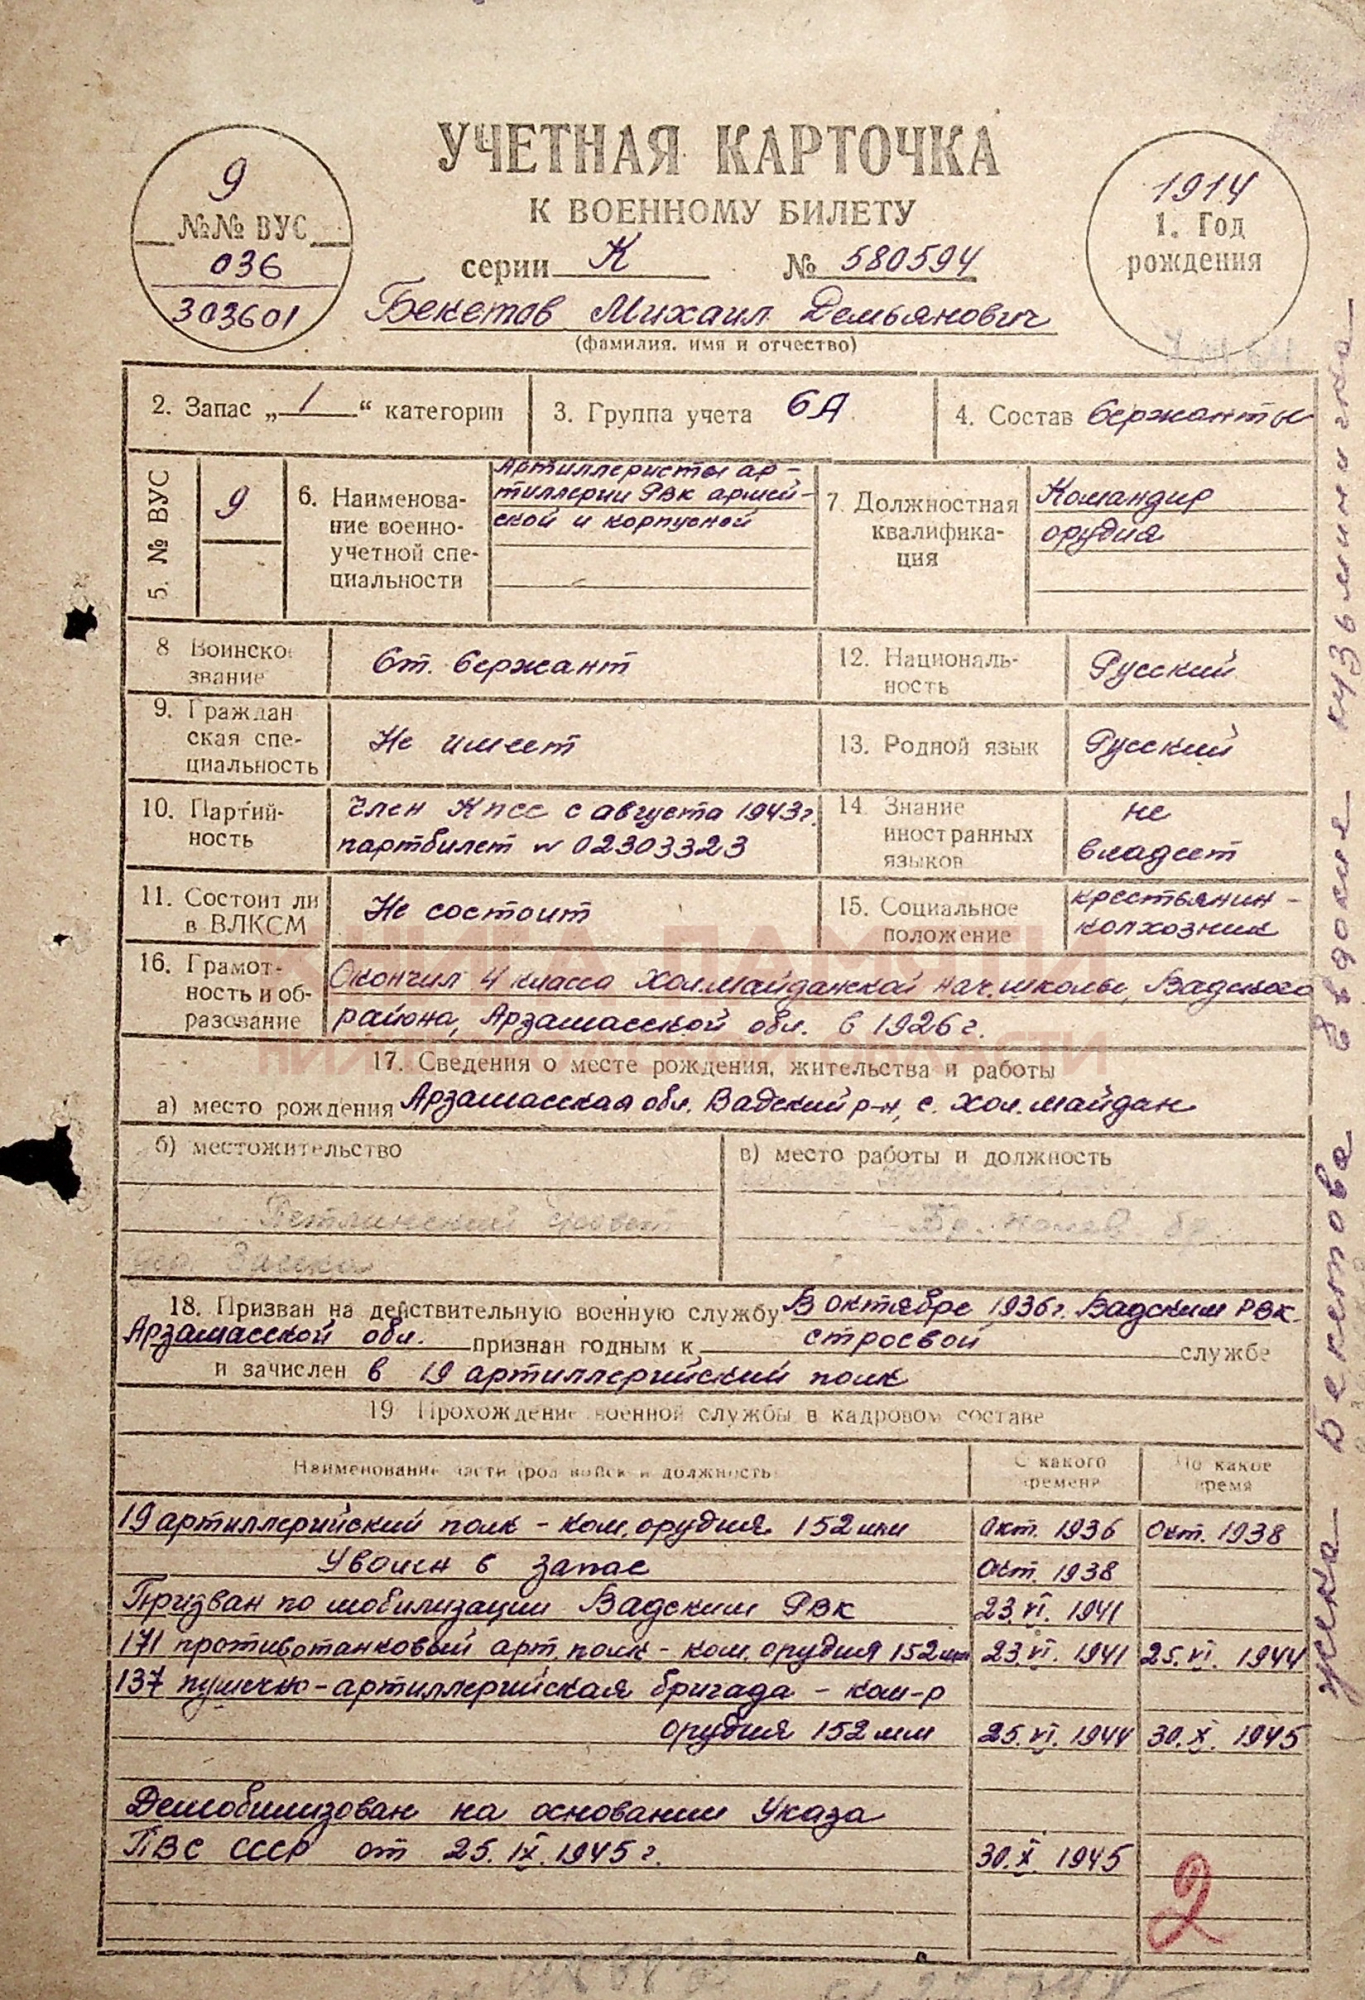 УЧЕТНАЯ КАРТОЧКА
К ВОЕННОМУ БИЛЕТУ
серии К № 580594
9
№№ ВУС
036
303601
1914
1. Год
рождения
Бекетов Михаил Демьянович
(фамилия, имя и отчество)
2. Запас „ 1 “ категории
3. Группа учета 6А
4. Состав Сержанты
5. № ВУС
9
6. Наименова-
ние военно-
учетной спе-
циальности
Артиллеристы ар-
тиллерии РВК армей-
ской и корпусной
7. Должностная
квалифика-
ция
Командир
орудия
8 Воинское
звание
Ст. Сержант
12. Националь-
ность
Русский
9. Граждан
ская спе-
циальность
Не имеет
13. Родной язык
Русский
10. Партий-
ность
Член КПСС с августа 1943г.
партбилет № 02303323
14. Знание
иностранных
языков
не
владеет
11. Состоит ли
в ВЛКСМ
Не состоит
15. Социальное
положение
крестьянин-
колхозник
КНИГА ПАМЯТИ
НИЖЕГОРОДСКОЙ ОБЛАСТИ
16. Грамот-
ность и об-
разование
Окончил 4 класса Хол.Майданской нач.школы, Вадского
района, Арзамасской обл. в 1926 г.
17. Сведения о месте рождения, жительства и работы
а) место рождения Арзамасская обл. Вадский р-н, с. Хол. Майдан
б) местожительство
в) место работы и должность
18. Призван на действительную военную службу В октябре 1936г. Вадским РВК.
Арзамасской обл. признан годным к строевой службе
и зачислен в 19 артиллерийский полк
19 Прохождение военной службы в кадровом составе
Наименование части (род войск и должность)
С какого
времени
По какое
время
19 артиллерийский полк - ком. орудия 152 мм Окт. 1936 Окт. 1938
Уволен в запас Окт. 1938
Призван по мобилизации Вадским РВК 23.VI. 1941
171 противотанковый арт. полк - ком. орудия 152 мм 23.VI. 1941 25.VI. 1944
137 пушечно-артиллерийская бригада - ком-р
орудия 152 мм 25.VI. 1944 30.X. 1945
Демобилизован на основании Указа
ПВС СССР от 25.IX.1945 г. 30.X. 1945
2
жена - Бекетова Евдокия Кузьминична